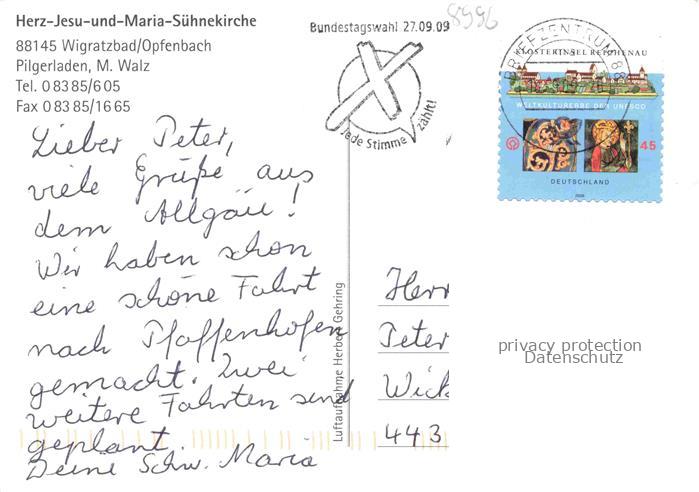 Herz-Jesu-und-Maria-Sühnekirche
88145 Wigratzbad/Opfenbach
Pilgerladen, M. Walz
Tel. 0 83 85/6 05
Fax 0 83 85/16 65
Lieber Peter,
viele Grüße aus
dem Allgäu!
Wir haben schon
eine schöne Fahrt
nach Pfaffenhofen
gemacht. Zwei
weitere Fahrten sind
geplant.
Deine Schw. Maria
Luftaufnahme Herbert Gehring
Bundestagswahl 27.09.09
Jede Stimme zählt!
8996
BRIEFZENTRUM 88
KLOSTERINSEL REICHENAU
WELTKULTURERBE DER UNESCO
45
DEUTSCHLAND
2008
Herr
Peter
Wick
443
privacy protection
Datenschutz